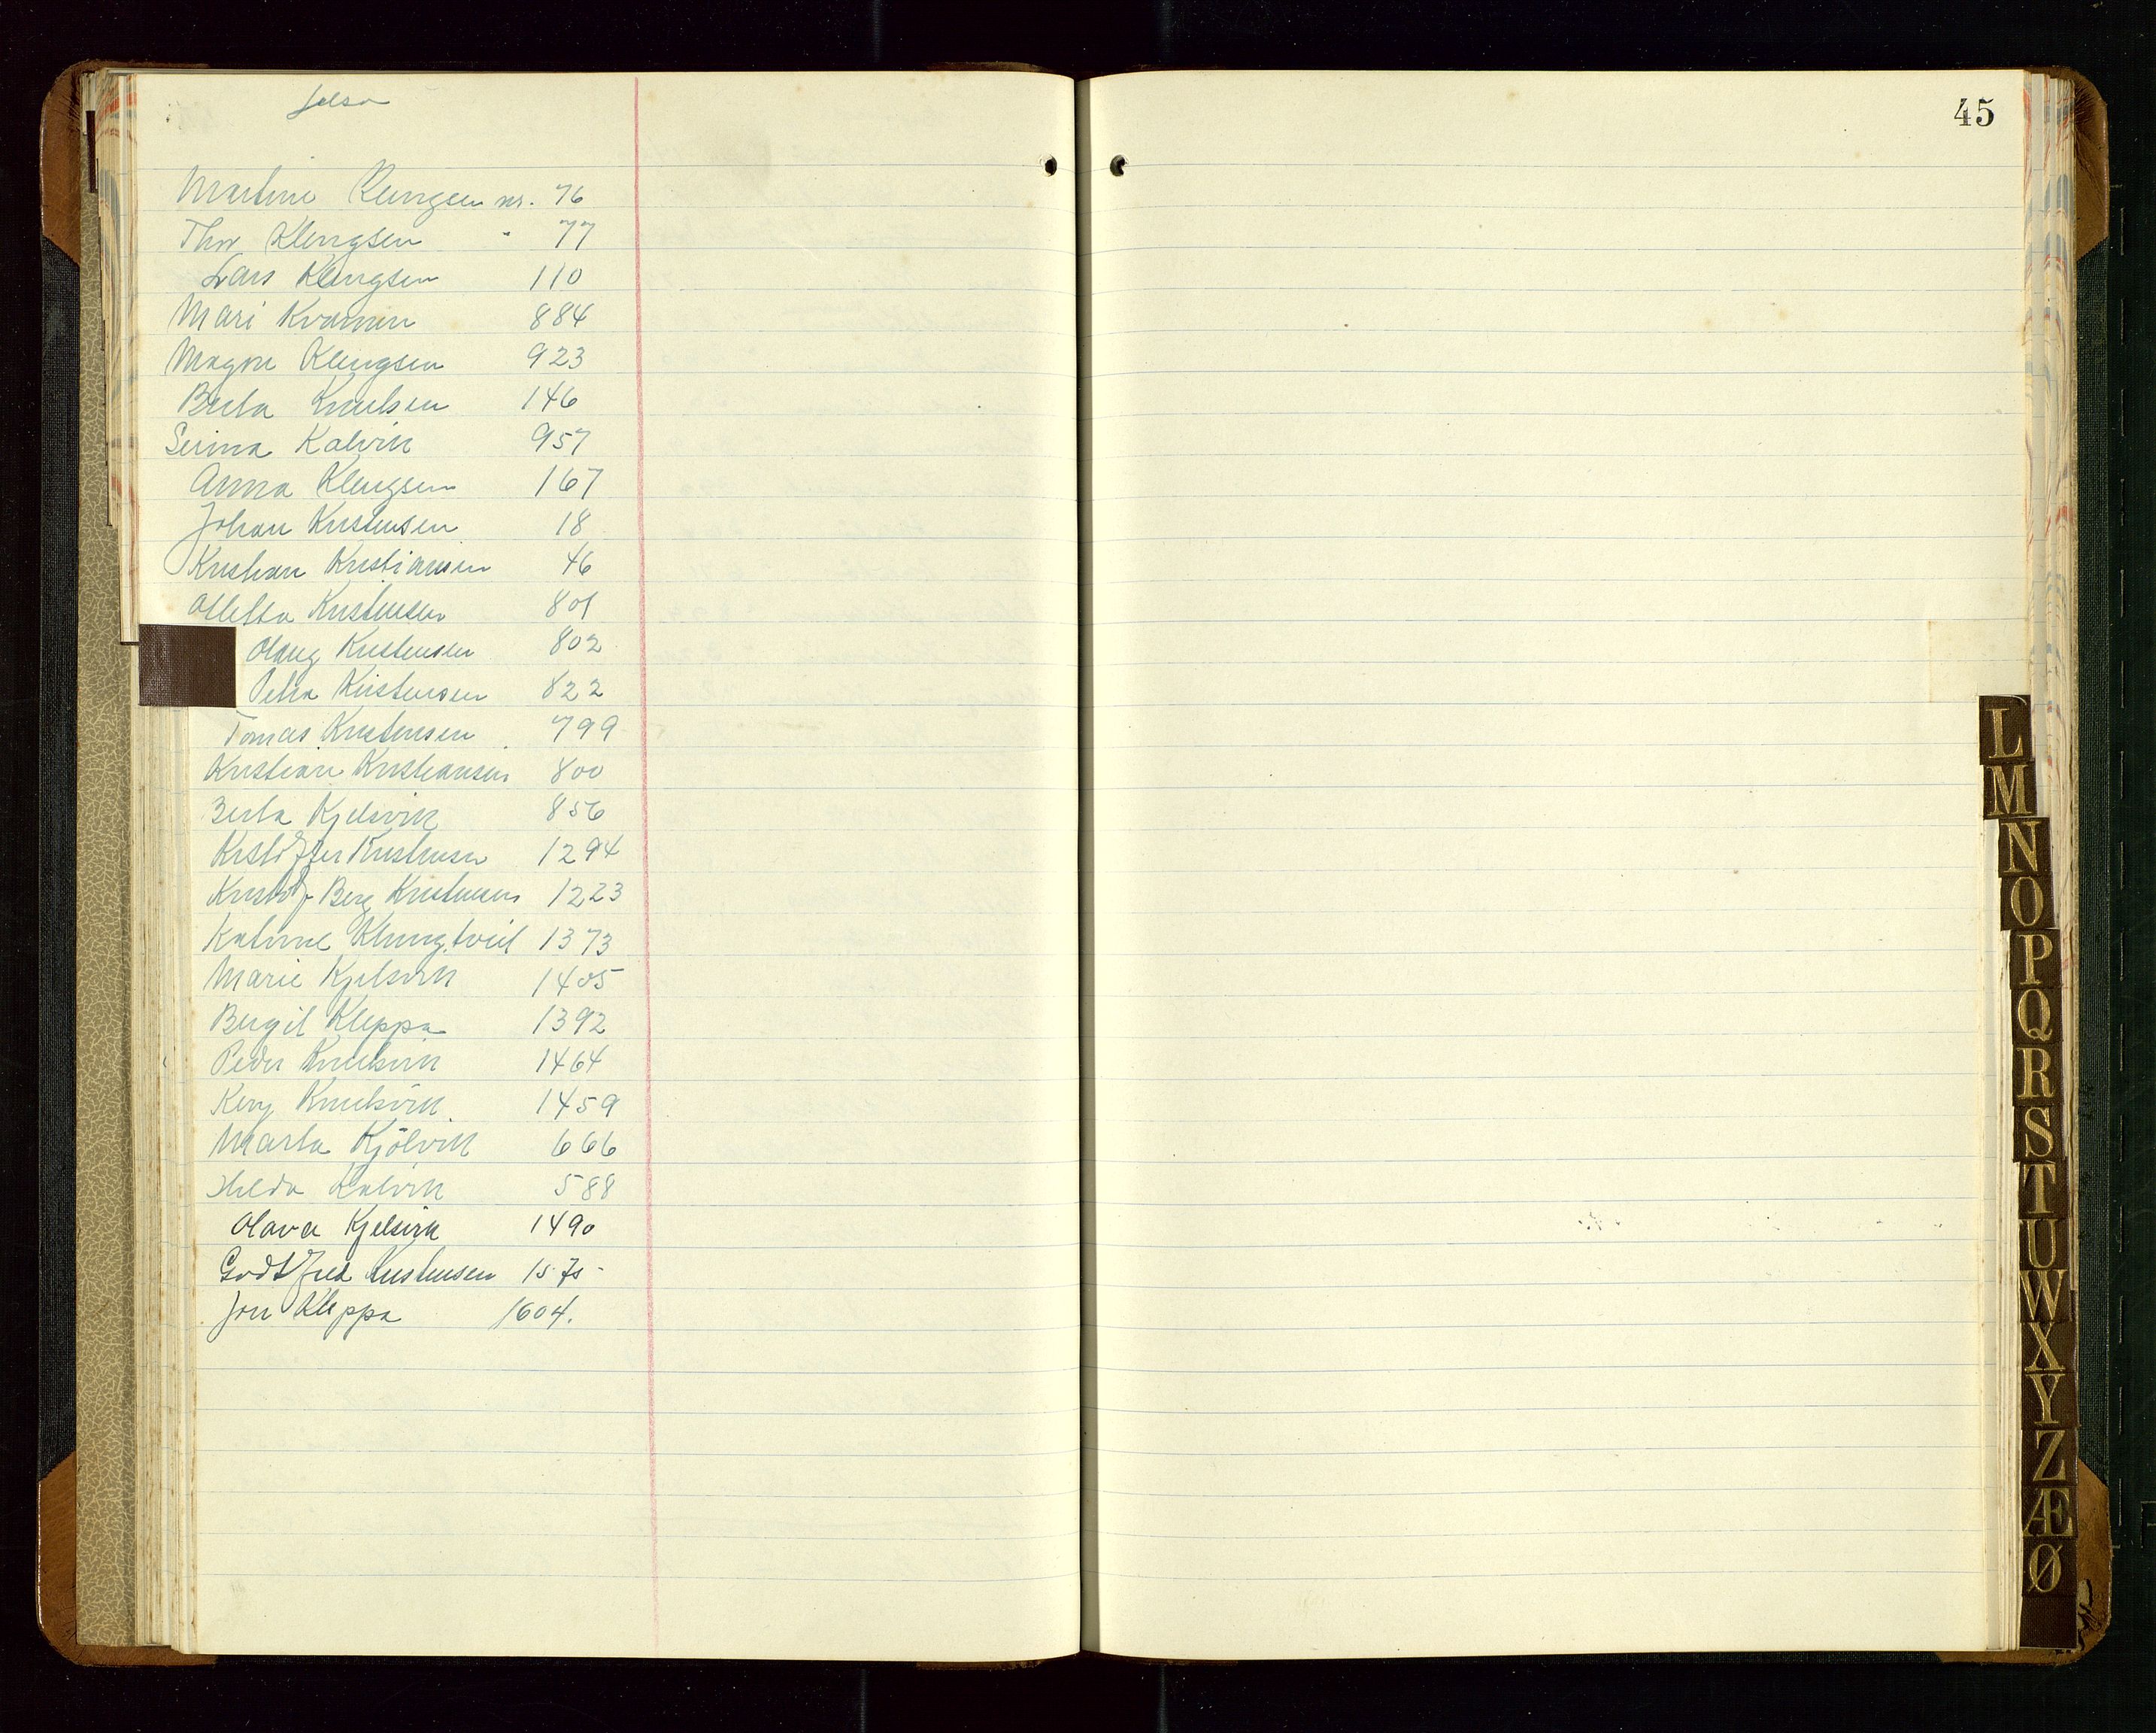 Jelsa
Martine Klengsen nr. 76
Thor Klengsen " 77
Lars Klengsen 110
Mari Kvamen 884
Magne Klengsen 923
Berta Knutsen 146
Serina Kalvik 957
Anna Klengsen 167
Johan Kristensen 18
Kristian Kristiansen 46
Olletta Kristensen 801
Olaug Kristensen 802
Petra Kristensen 822
Tomas Kristensen 799
Kristian Kristiansen 800
Berta Kjelsvik 856
Kristoffer Kristensen 1294
Kristof Berg Kristensen 1223
Katrine Klungtveit 1373
Marie Kjelsvik 1405
Bergit Kleppa 1392
Peder Knutsvik 1464
Knutsvik 1459
Marta Kjölvik 666
Hilda Kalvik 588
Olava Kjelsvik 1490
Godtfred Kristensen 1575-
Jon Kleppa 1604.
45
L
M
N
O
P
Q
R
S
T
U
W
X
Y
Z
Æ
Ø